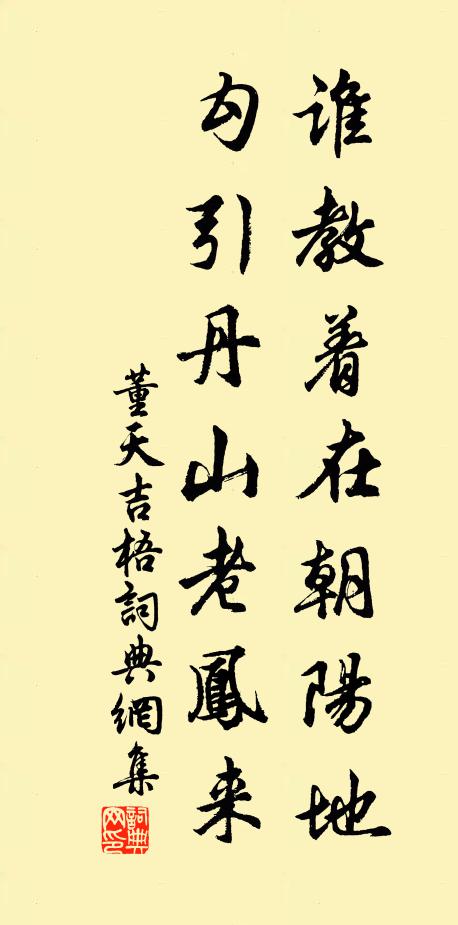 誰教着在朝陽地
勾引丹山老鳳来
董天吉梧詞典網集
詞典網印